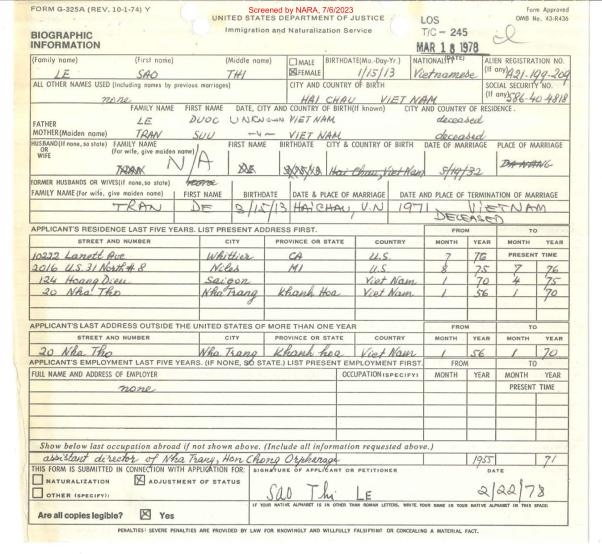 FORM G-325A (REV. 10-1-74) Y
Screened by NARA, 7/6/2023
Form Approved
OMB No. 43-R436
UNITED STATES DEPARTMENT OF JUSTICE
Immigration and Naturalization Service
LOS
T/C - 245
BIOGRAPHIC INFORMATION
MAR 18 1978
(Family name) (First name) (Middle name) MALE FEMALE BIRTHDATE (Mo.-Day-Yr.) NATIONALITY (DATE) ALIEN REGISTRATION NO. (If any)
LE SAO THI 1/15/13 Vietnamese A21-199-209
ALL OTHER NAMES USED (Including names by previous marriages) CITY AND COUNTRY OF BIRTH SOCIAL SECURITY NO. (If any)
none HAI CHAU VIET NAM 586-40-4818
FAMILY NAME FIRST NAME DATE, CITY AND COUNTRY OF BIRTH (If known) CITY AND COUNTRY OF RESIDENCE.
FATHER LE DUOC UNKNOWN VIET NAM deceased
MOTHER (Maiden name) TRAN SUU VIET NAM deceased
HUSBAND (If none, so state) OR WIFE FAMILY NAME (For wife, give maiden name) FIRST NAME BIRTHDATE CITY & COUNTRY OF BIRTH DATE OF MARRIAGE PLACE OF MARRIAGE
N/A Hai Chau, Viet Nam 5/19/32 DA NANG
FORMER HUSBANDS OR WIVES (if none, so state) none
FAMILY NAME (For wife, give maiden name) FIRST NAME BIRTHDATE DATE & PLACE OF MARRIAGE DATE AND PLACE OF TERMINATION OF MARRIAGE
TRAN DE 3/15/13 HAI CHAU, V.N 1971 VIETNAM
DECEASED
APPLICANT'S RESIDENCE LAST FIVE YEARS. LIST PRESENT ADDRESS FIRST. FROM TO
STREET AND NUMBER CITY PROVINCE OR STATE COUNTRY MONTH YEAR MONTH YEAR
10222 Lanett Ave Whittier CA U.S. 7 76 PRESENT TIME
2016 U.S. 31 North # 8 Niles MI U.S. 8 75 7 76
124 Hoang Dieu Saigon Viet Nam 1 70 4 75
20 Nha Tho Nha Trang Khanh Hoa Viet Nam 1 56 1 70
APPLICANT'S LAST ADDRESS OUTSIDE THE UNITED STATES OF MORE THAN ONE YEAR FROM TO
STREET AND NUMBER CITY PROVINCE OR STATE COUNTRY MONTH YEAR MONTH YEAR
20 Nha Tho Nha Trang Khanh hoa Viet Nam 1 56 1 70
APPLICANT'S EMPLOYMENT LAST FIVE YEARS. (IF NONE, SO STATE.) LIST PRESENT EMPLOYMENT FIRST. FROM TO
FULL NAME AND ADDRESS OF EMPLOYER OCCUPATION (SPECIFY) MONTH YEAR MONTH YEAR
none PRESENT TIME
Show below last occupation abroad if not shown above. (Include all information requested above.)
assistant director of Nha Trang, Hon Chong Orphenage 1955 71
THIS FORM IS SUBMITTED IN CONNECTION WITH APPLICATION FOR: SIGNATURE OF APPLICANT OR PETITIONER DATE
NATURALIZATION ADJUSTMENT OF STATUS
OTHER (SPECIFY):
Sao Thi LE 2/22/78
Are all copies legible? Yes
IF YOUR NATIVE ALPHABET IS IN OTHER THAN ROMAN LETTERS, WRITE YOUR NAME IN YOUR NATIVE ALPHABET IN THIS SPACE:
PENALTIES: SEVERE PENALTIES ARE PROVIDED BY LAW FOR KNOWINGLY AND WILLFULLY FALSIFYING OR CONCEALING A MATERIAL FACT.